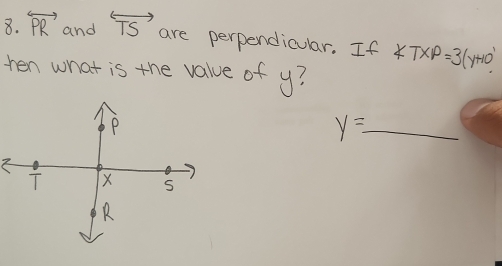 8. PR and TS are perpendicular. If ∠TXP=3(y+10)
then what is the value of y?
y=
P
T X S
R